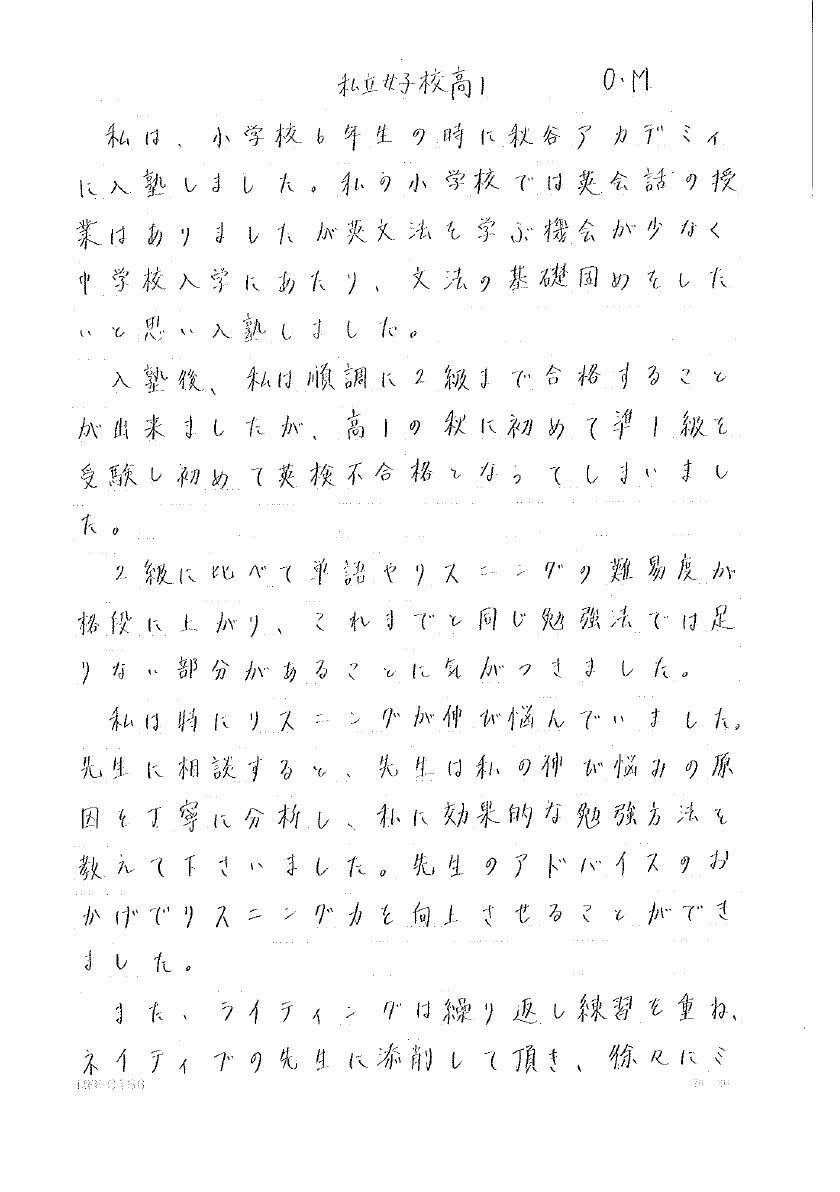 私立女子校高1 O.M
私は、小学校6年生の時に秋谷アカデミィ
に入塾しました。私の小学校では英会話の授
業はありましたが英文法を学ぶ機会が少なく
中学校入学にあたり、文法の基礎固めをした
いと思い入塾しました。
入塾後、私は順調に2級まで合格すること
が出来ましたが、高1の秋に初めて準1級を
受験し初めて英検不合格となってしまいまし
た。
2級に比べて単語やリスニングの難易度が
格段に上がり、これまでと同じ勉強法では足
りない部分があることに気がつきました。
私は特にリスニングが伸び悩んでいました。
先生に相談すると、先生は私の伸び悩みの原
因を丁寧に分析し、私に効果的な勉強方法を
教えて下さいました。先生のアドバイスのお
かげでリスニング力を向上させることができ
ました。
また、ライティングは繰り返し練習を重ね、
ネイティブの先生に添削して頂き、徐々にミ